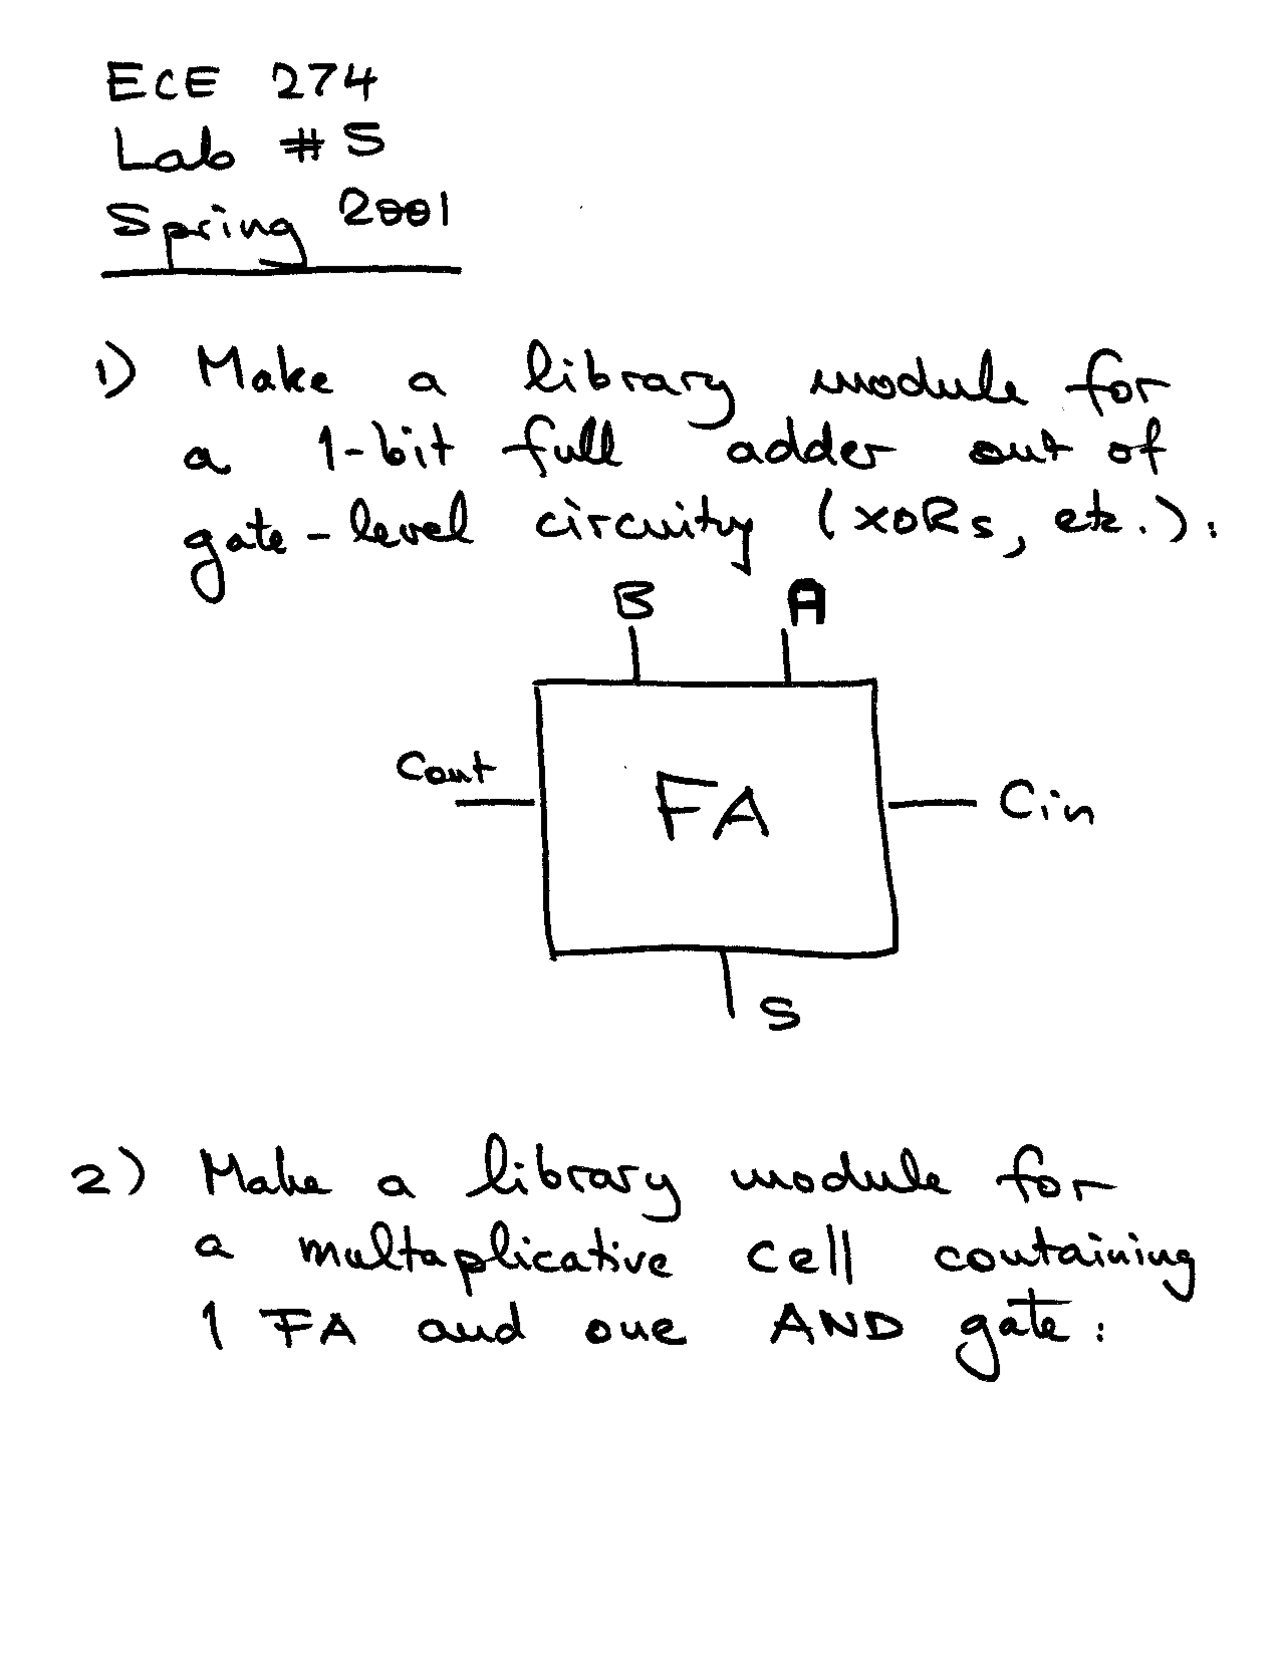 ECE 274
Lab #5
Spring 2001
1) Make a library module for
a 1-bit full adder out of
gate-level circuity (XORs, etc.):
B A
Cout FA Cin
S
2) Make a library module for
a multaplicative cell containing
1 FA and one AND gate: